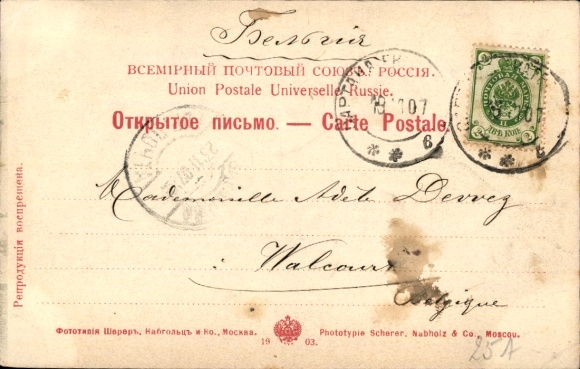 Бельгія
ВСЕМІРНЫЙ ПОЧТОВЫЙ СОЮЗЪ. РОССІЯ.
Union Postale Universelle. Russie.
Открытое письмо. — Carte Postale.
6
2 2
ДВѢ КОП.
6
Mademoiselle Adèle
Walcourt
Belgique
Репродукція воспрещена.
Фототипія Шереръ, Набгольцъ и Ко., Москва.
Phototypie Scherer, Nabholz & Co., Moscou.
19 03.
25A